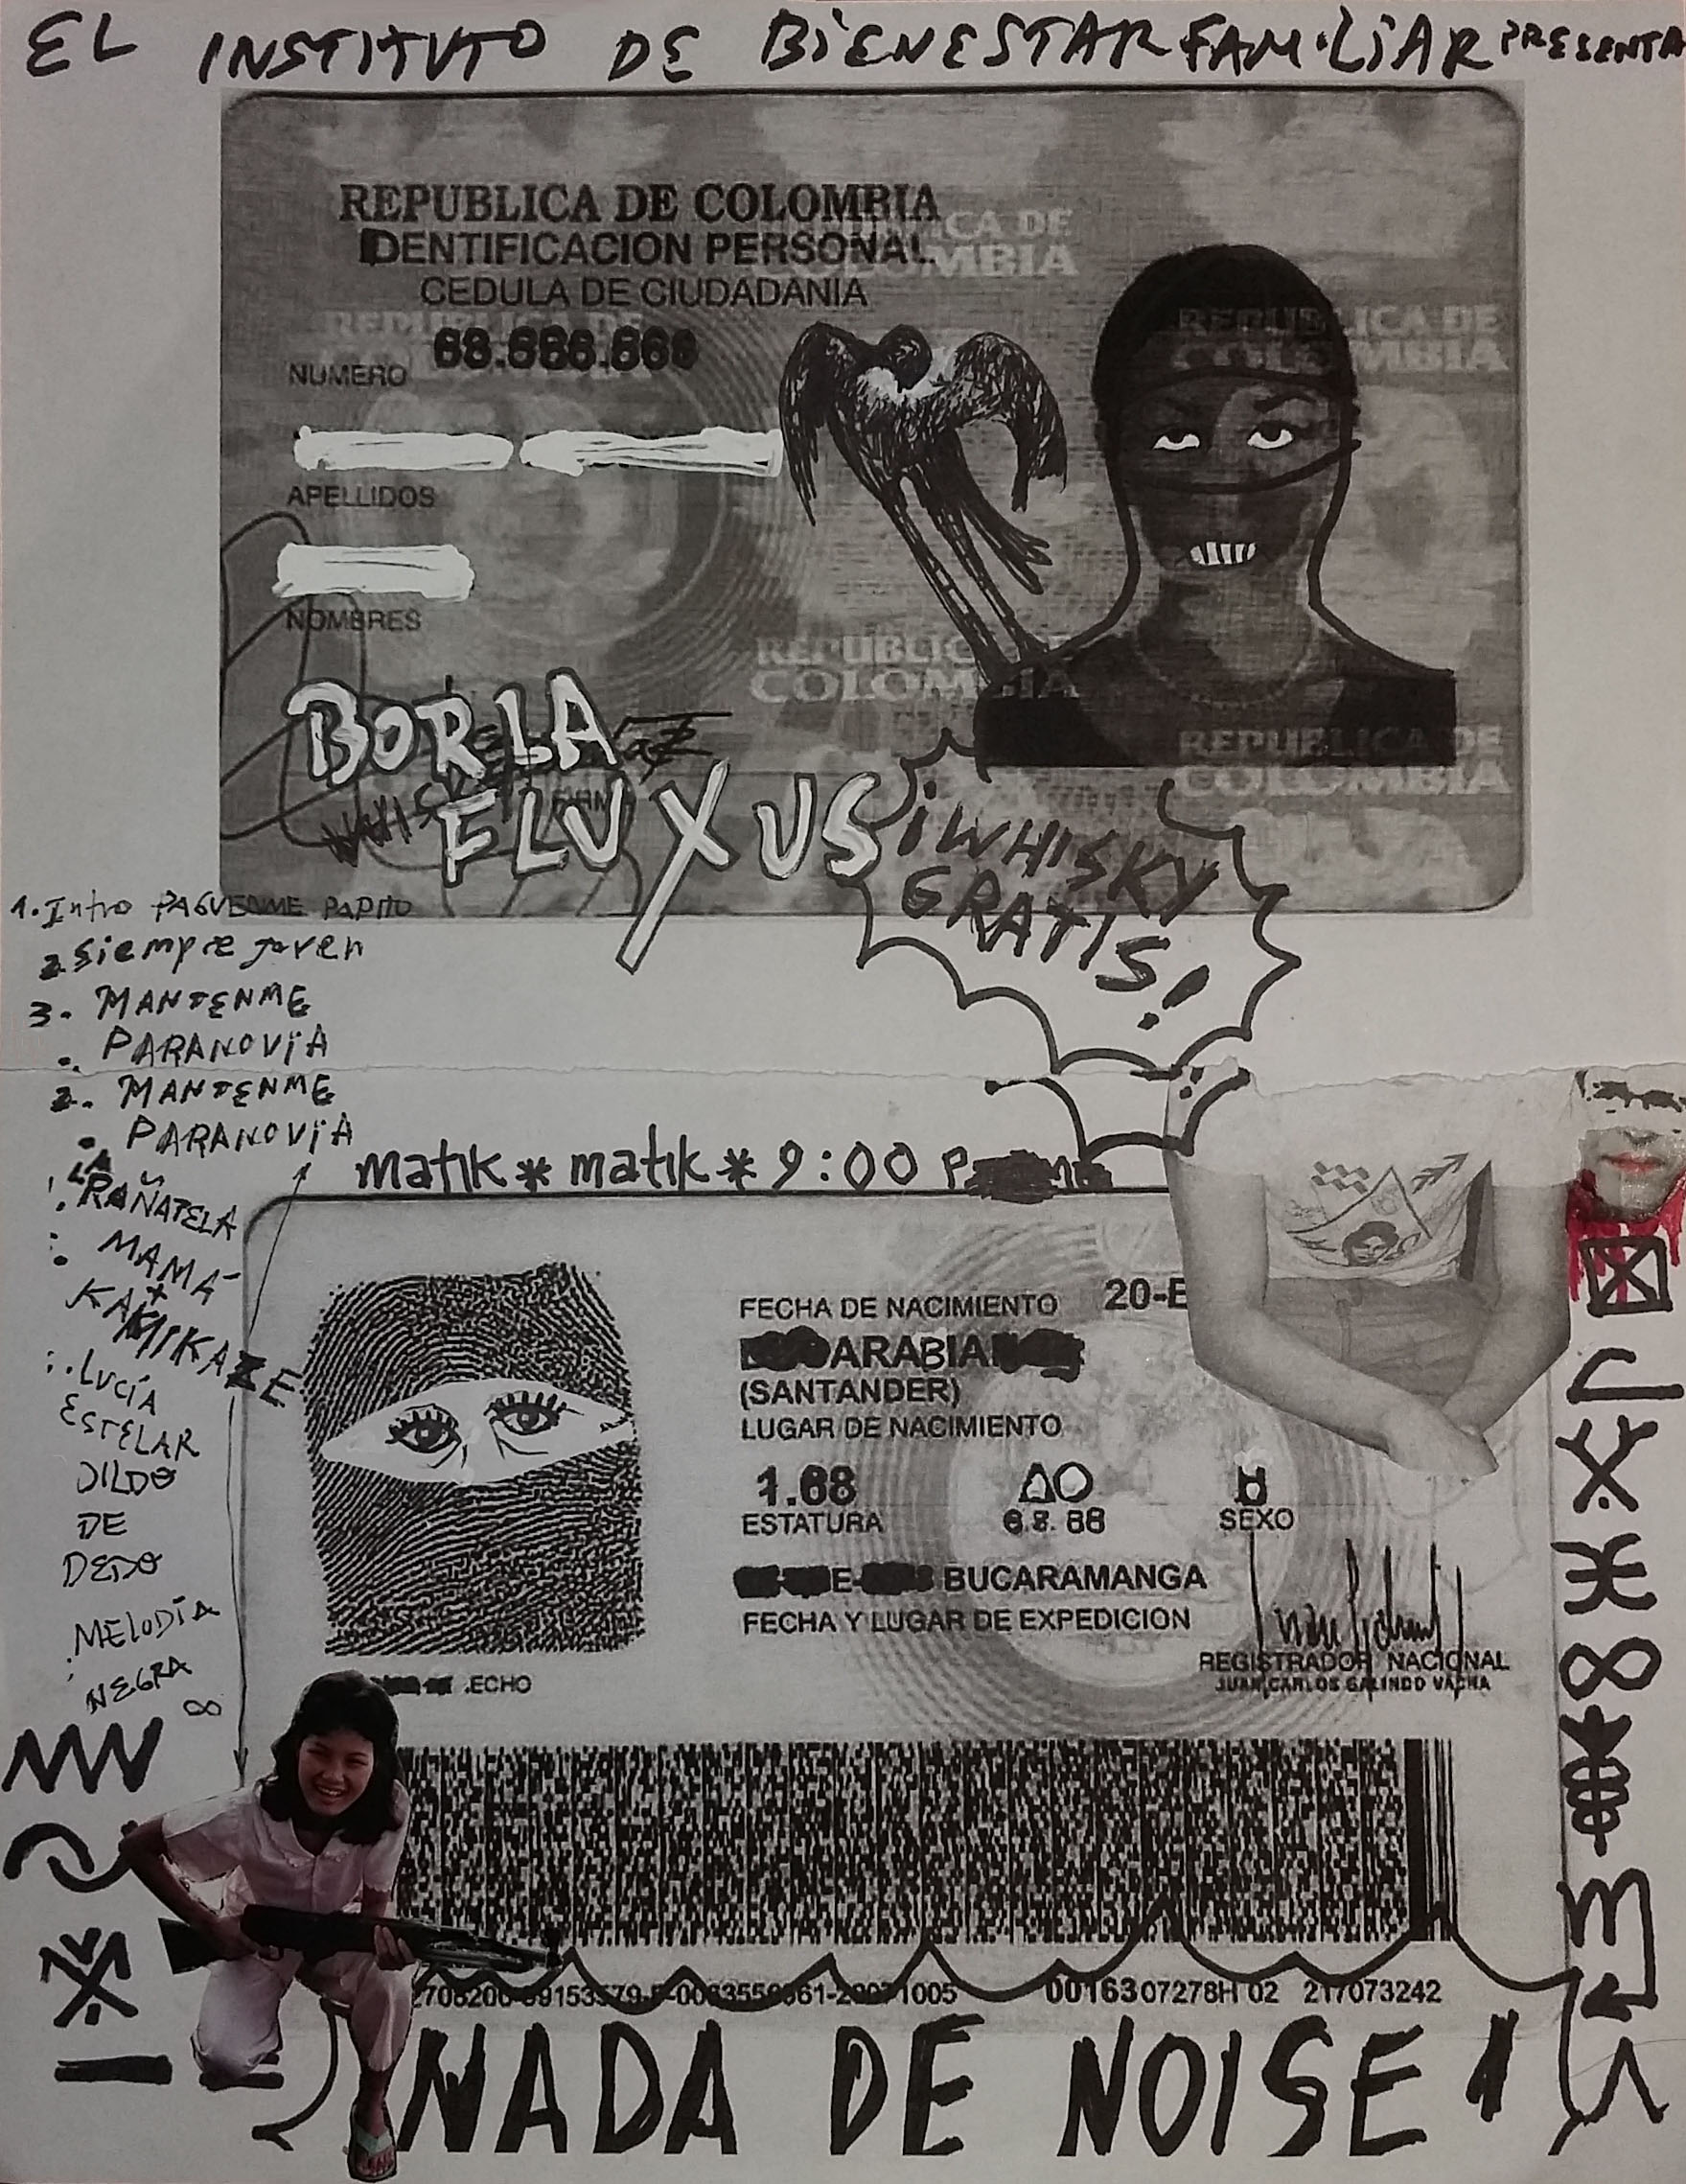 EL INSTITUTO DE BIENESTAR FAMILIAR PRESENTA
REPUBLICA DE COLOMBIA
IDENTIFICACION PERSONAL
CEDULA DE CIUDADANIA
REPUBLICA DE
COLOMBIA
REPUBLICA DE
COLOMBIA
REPUBLICA DE
NUMERO
APELLIDOS
NOMBRES
REPUBLICA DE
COLOMBIA
REPUBLICA DE
COLOMBIA
BORLA
FLUXUS
¡WHISKY
GRATIS!
1. Intro PAGUENME PAPITO
2. Siempre Joven
3. MANTENME
PARANOVIA
2. MANTENME
PARANOVIA
LA
RAÑATELA
MAMÁ
KAMIKAZE
LUCÍA
ESTELAR
DILDO
DE
DEDO
MELODÍA
NEGRA
∞
matik * matik * 9:00 P
FECHA DE NACIMIENTO 20-E
ARABIA
(SANTANDER)
LUGAR DE NACIMIENTO
1.68
ESTATURA
SEXO
BUCARAMANGA
FECHA Y LUGAR DE EXPEDICION
REGISTRADOR NACIONAL
JUAN CARLOS GALINDO VACHA
ECHO
0016307278H 02 217073242
NADA DE NOISE!